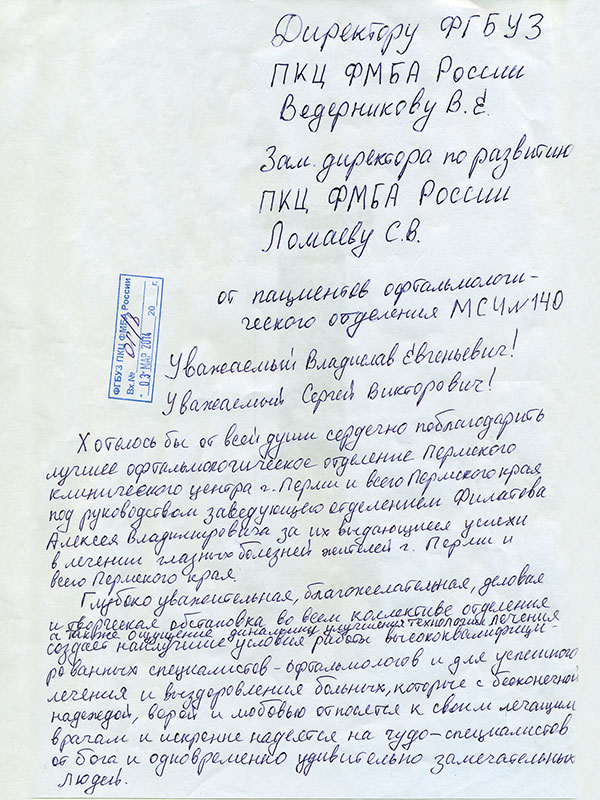 Директору ФГБУЗ
ПКЦ ФМБА России
Ведерникову В.Е.
Зам. директора по развитию
ПКЦ ФМБА России
Ломаеву С.В.
от пациентов офтальмологи-
ческого отделения МСЧ №140
ФГБУЗ ПКЦ ФМБА России
Вх.№
03 МАР 2014 20 г.
Уважаемый Владислав Евгеньевич!
Уважаемый Сергей Викторович!
Хотелось бы от всей души сердечно поблагодарить
лучшее офтальмологическое отделение Пермского
клинического центра г. Перми и всего Пермского края
под руководством заведующего отделением Филатова
Алексея Владимировича за их выдающиеся успехи
в лечении глазных болезней жителей г. Перми и
всего Пермского края
Глубоко уважительная, благожелательная, деловая
и творческая обстановка во всем коллективе отделения
а также ощущение динамики улучшения технологии лечения
создает наилучшие условия работы высококвалифици-
рованных специалистов-офтальмологов и для успешного
лечения и выздоровления больных, которые с бесконечной
надеждой, верой и любовью относятся к своим лечащим
врачам и искренне надеятся на чудо-специалистов
от бога и одновременно удивительно замечательных
людей.